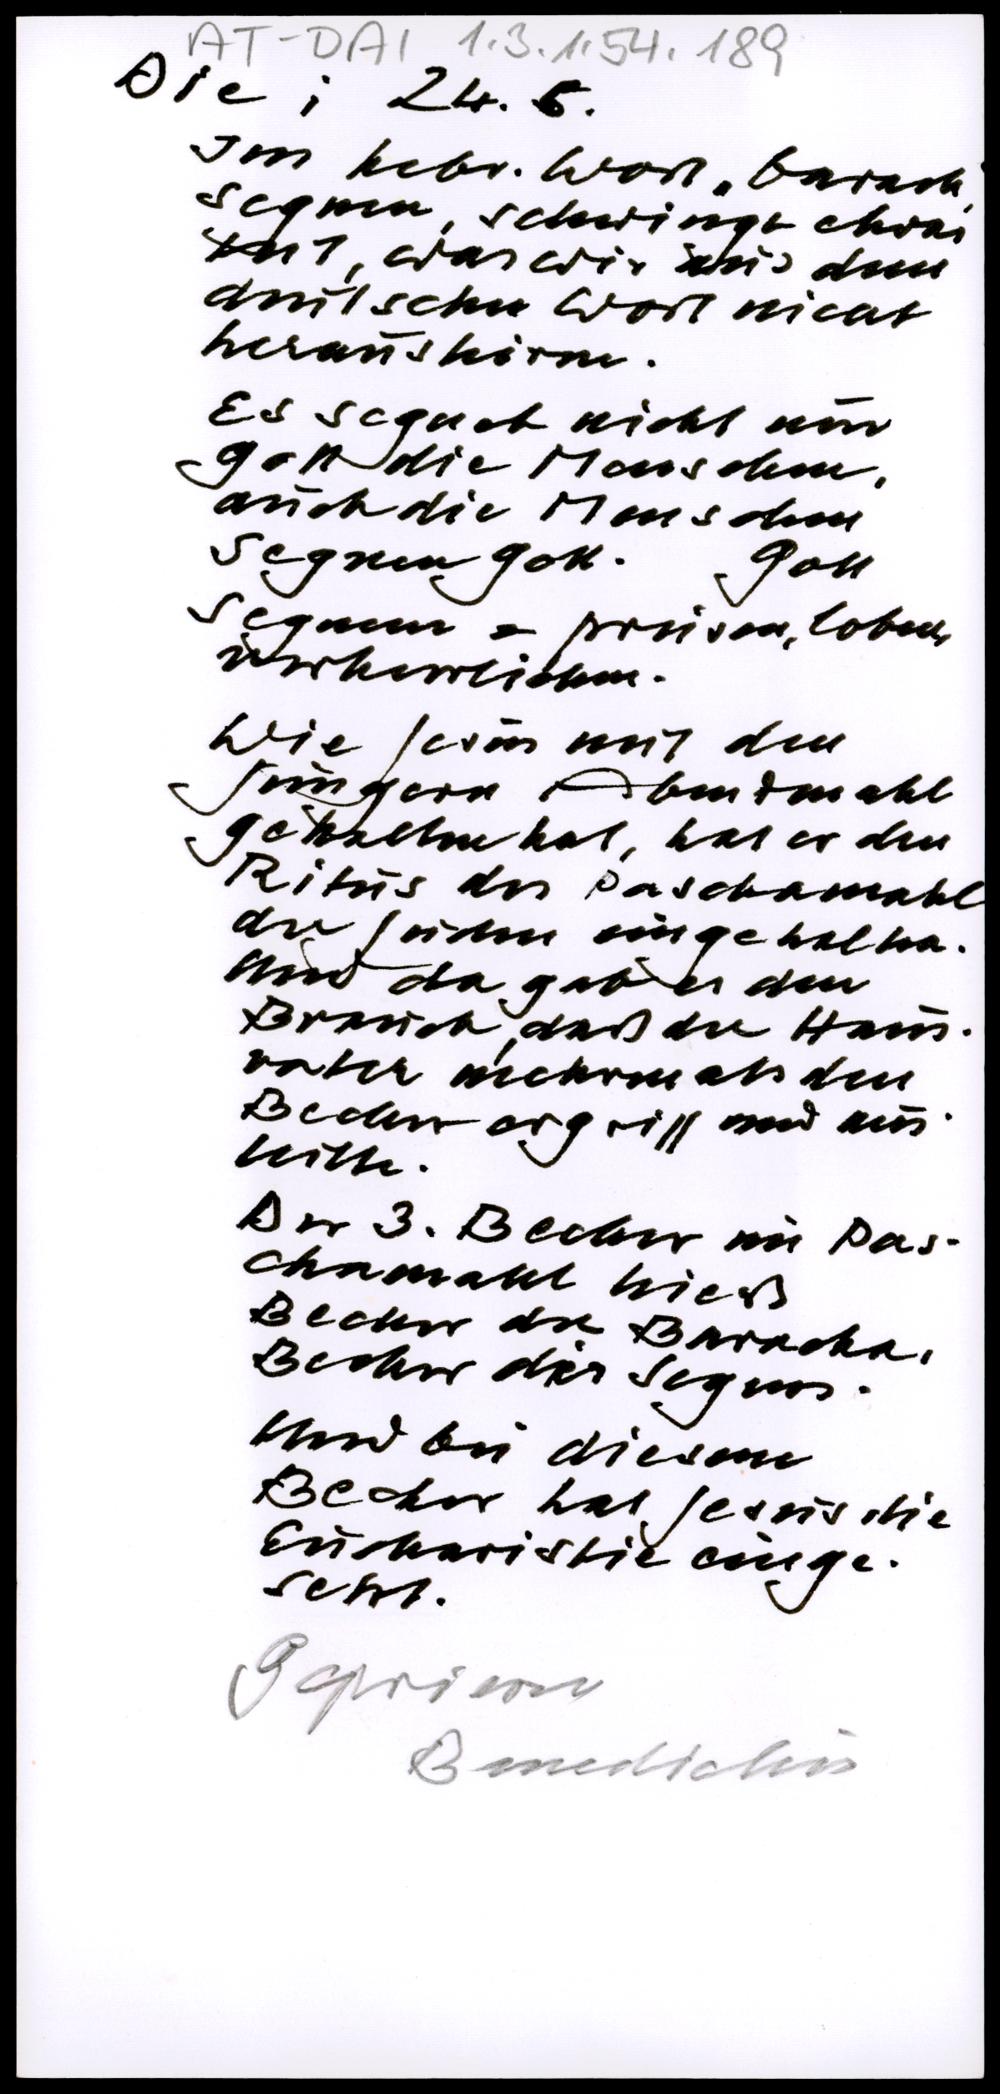 AT-DAI 1.3.1.54.189
Die ; 24. 5.
Im hebr. Wort "barach,
segnen, schwingt etwas
mit, was wir aus dem
deutschen Wort nicht
heraushören.
Es segnet nicht nur
Gott die Menschen,
auch die Menschen
segnen Gott. Gott
segnen = preisen, loben,
verherrlichen.
Wie Jesus mit den
Jüngern Abendmahl
gehalten hat, hat er den
Ritus des Paschamahl
der Juden eingehalten.
Und da gab es den
Brauch, daß der Haus-
vater mehrmals den
Becher ergriff und aus-
teilte.
Der 3. Becher im Pas-
chamahl hieß
Becher der Baracha,
Becher des Segens.
Und bei diesem
Becher hat Jesus die
Eucharistie einge-
setzt.
Benedictus